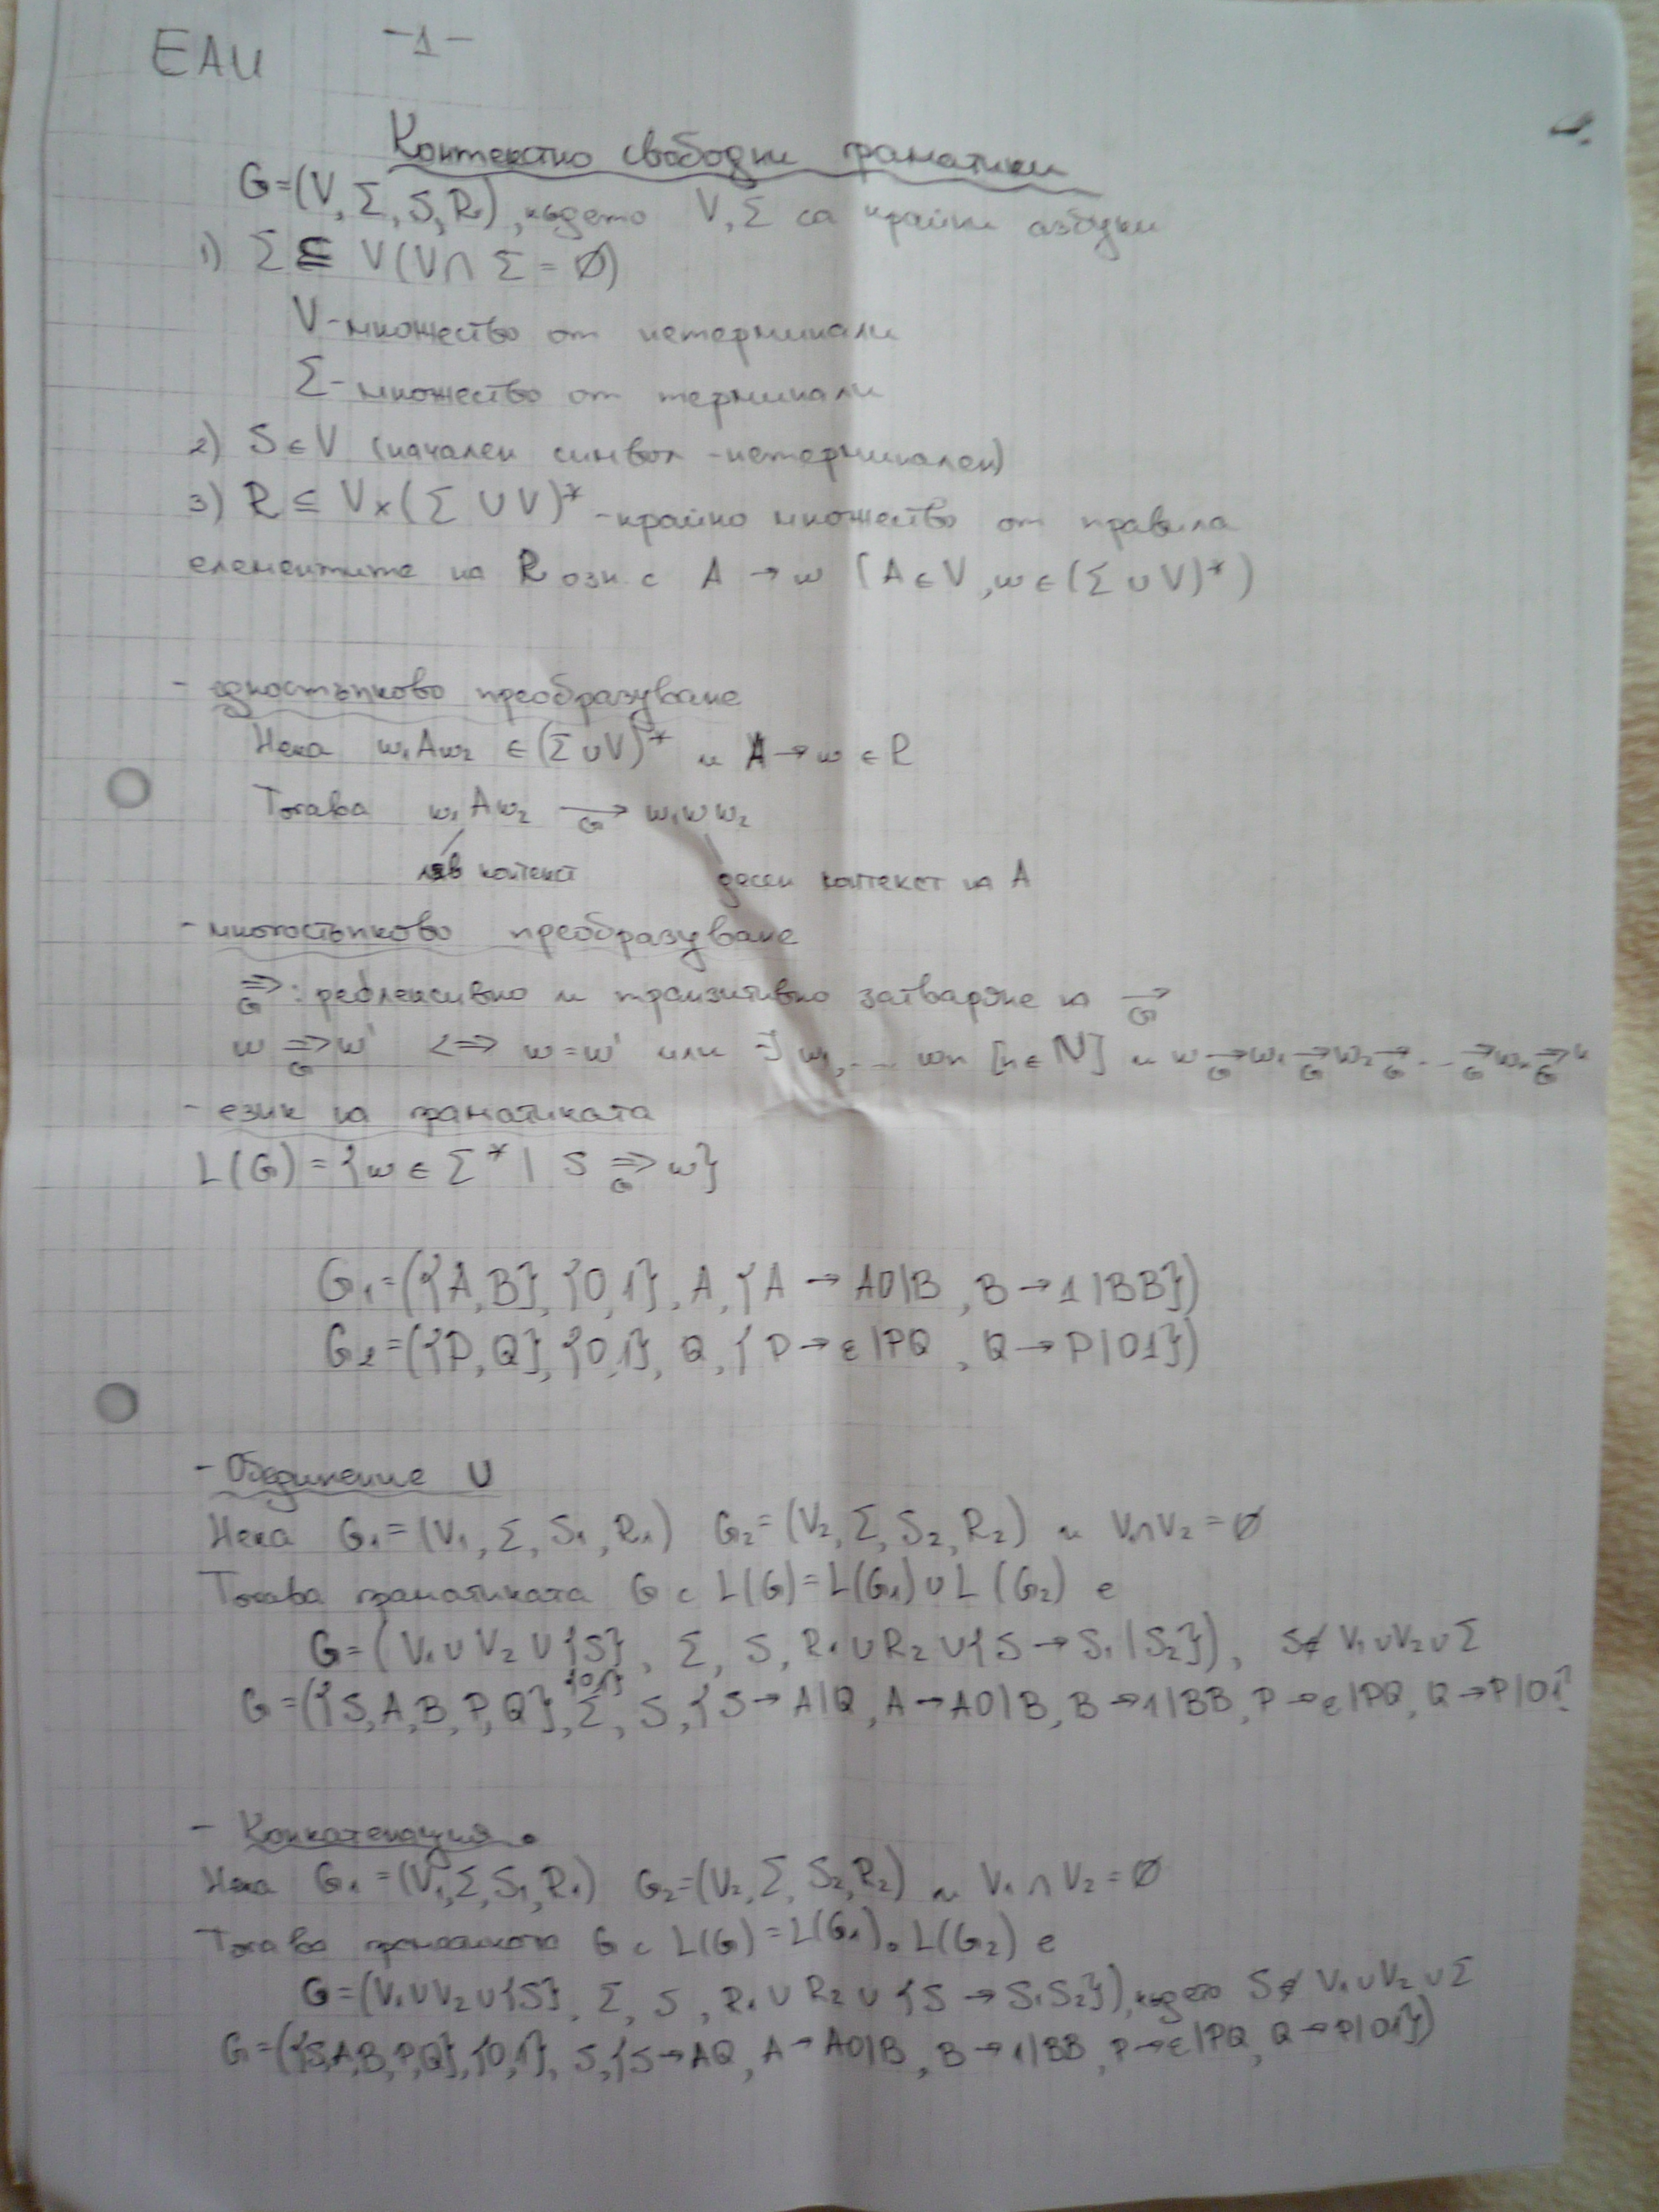 ЕАИ -1-
Контекстно свободни граматики
G=(V, Σ, S, R), където V, Σ са крайни азбуки
1) Σ ⊆ V (V ∩ Σ = Ø)
V-множество от нетерминали
Σ-множество от терминали
2) S ∈ V (начален символ -нетерминален)
3) R ⊆ V x (Σ ∪ V)* -крайно множество от правила
елементите на R озн. с A → w (A ∈ V, w ∈ (Σ ∪ V)*)
- едностъпково преобразуване
Нека w₁Aw₂ ∈ (Σ ∪ V)* и A → w ∈ R
Тогава w₁Aw₂ →G w₁ww₂
ляв контекст десен контекст на A
- многостъпково преобразуване
⇒G : рефлексивно и транзитивно затваряне на →G
w ⇒G w' <=> w=w' или ∃ w₁,... wn [n ∈ N] и w →G w₁ →G w₂ →G ... →G wn
- език на граматиката
L(G) = {w ∈ Σ* | S ⇒G w}
G₁=({A,B}, {0,1}, A, {A → A0|B, B → 1|BB})
G₂=({P,Q}, {0,1}, Q, {P → ε|PQ, Q → P|01})
- Обединение ∪
Нека G₁=(V₁, Σ, S₁, R₁) G₂=(V₂, Σ, S₂, R₂) и V₁∩V₂=Ø
Тогава граматиката G с L(G)=L(G₁)∪L(G₂) е
G=(V₁∪V₂∪{S}, Σ, S, R₁∪R₂∪{S → S₁|S₂}), S∉V₁∪V₂∪Σ
{0,1}
G=({S,A,B,P,Q}, Σ, S, {S → A|Q, A → A0|B, B → 1|BB, P → ε|PQ, Q → P|01}
- Конкатенация •
Нека G₁=(V₁,Σ,S₁,R₁) G₂=(V₂,Σ,S₂,R₂) и V₁∩V₂=Ø
Тогава граматиката G с L(G)=L(G₁)∘L(G₂) е
G=(V₁∪V₂∪{S}, Σ, S, R₁∪R₂∪{S → S₁S₂}), където S∉V₁∪V₂∪Σ
G=({S,A,B,P,Q},{0,1}, S,{S→AQ, A→A0|B, B→1|BB, P→ε|PQ, Q→P|01})